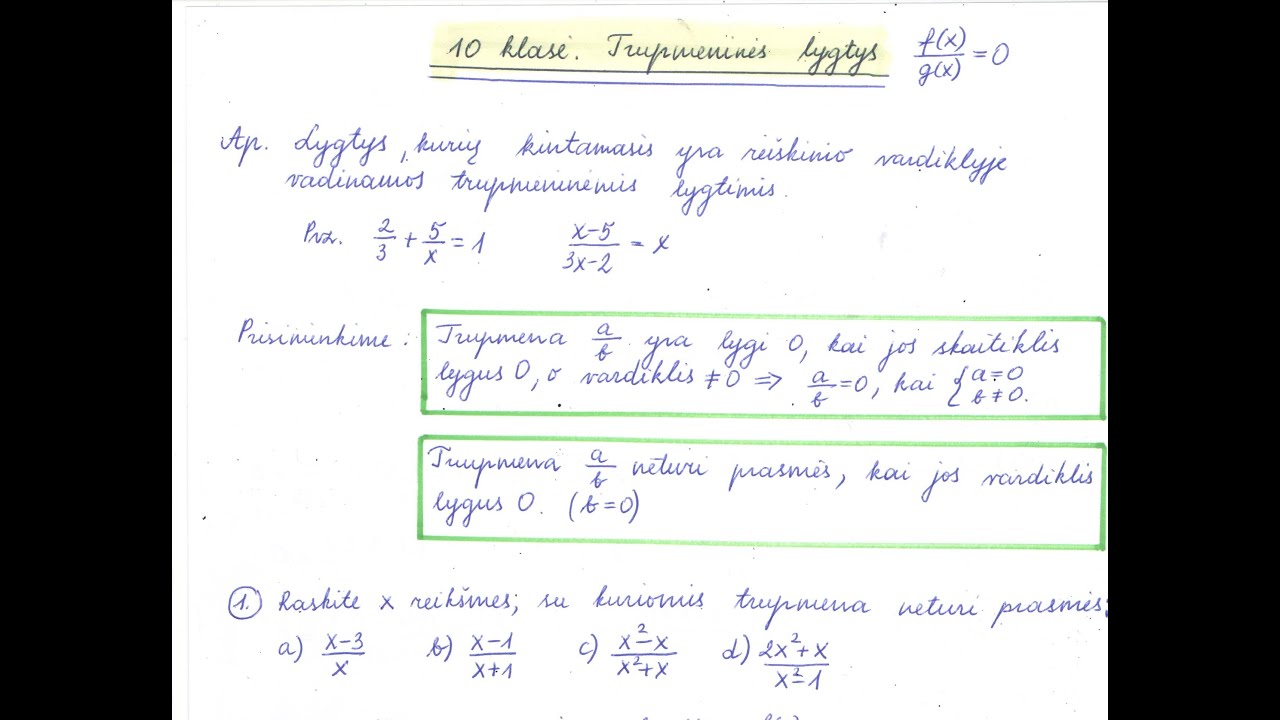 10 klasė. Trupmeninės lygtys f(x)/g(x) = 0
Ap. Lygtys, kurių kintamasis yra reiškinio vardiklyje
vadinamos trupmeninėmis lygtimis.
Pvz. 2/3 + 5/x = 1 (x-5)/(3x-2) = x
Prisiminkime: Trupmena a/b yra lygi 0, kai jos skaitiklis
lygus 0, o vardiklis ≠ 0 ⇒ a/b = 0, kai { a = 0 b ≠ 0.
Trupmena a/b neturi prasmės, kai jos vardiklis
lygus 0. (b = 0)
1. Raskite x reikšmes, su kuriomis trupmena neturi prasmės:
a) (x-3)/x b) (x-1)/(x+1) c) (x²-x)/(x²+x) d) (2x²+x)/(x²-1)